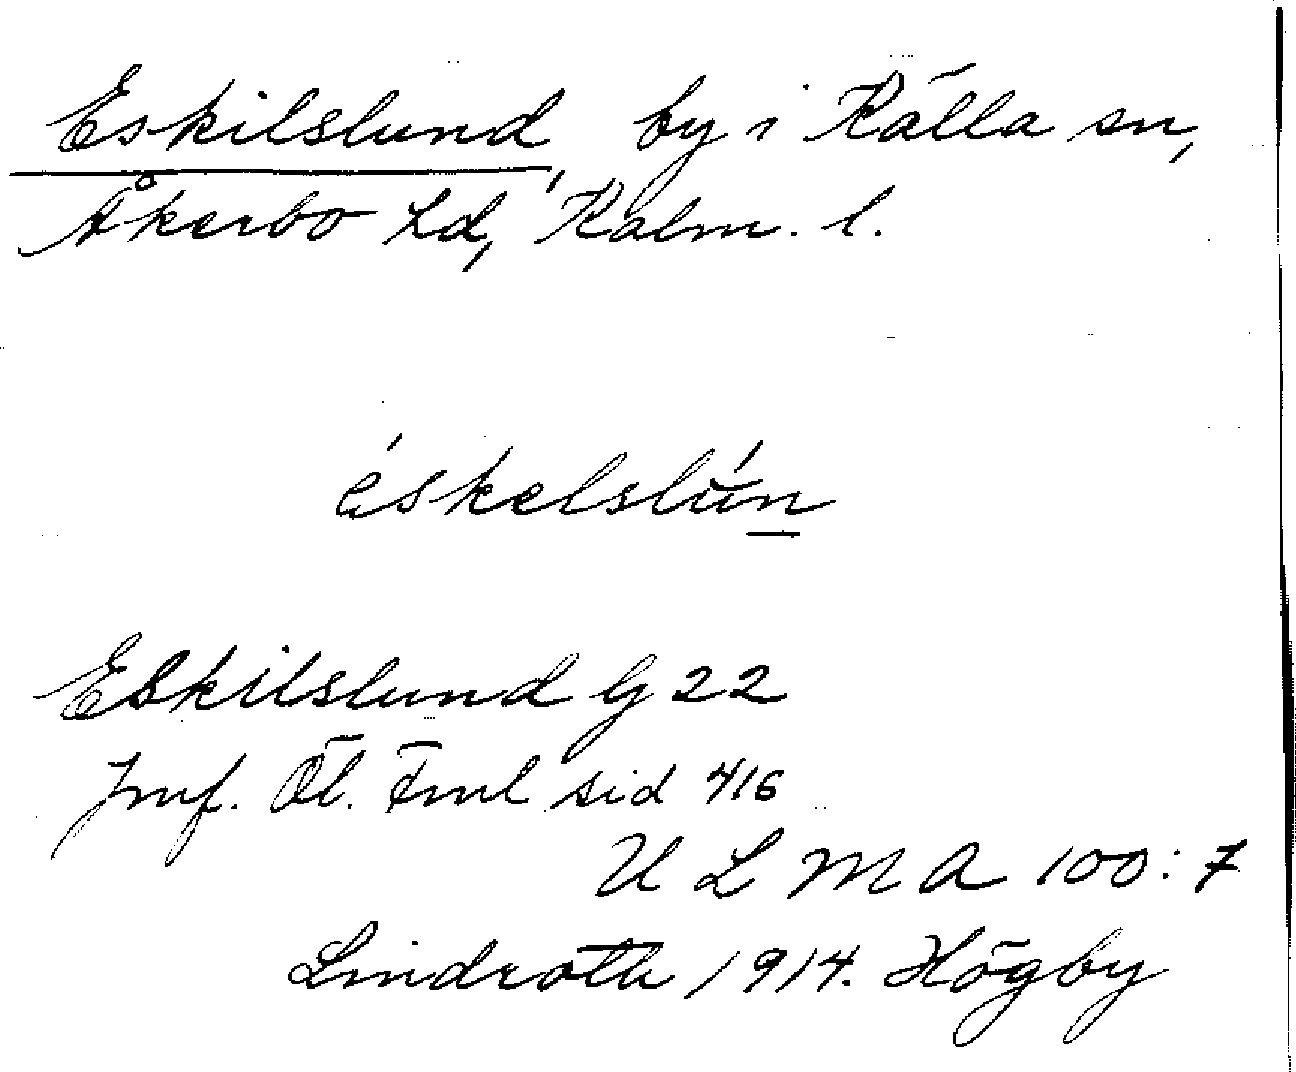 Eskilslund, by i Källa sn,
Åkerbo hd, Kalm. l.
éskelslún
Eskilslund G 22
Jmf. Öl. Fml sid 416
U L M A 100:7
Lindroth 1914. Högby